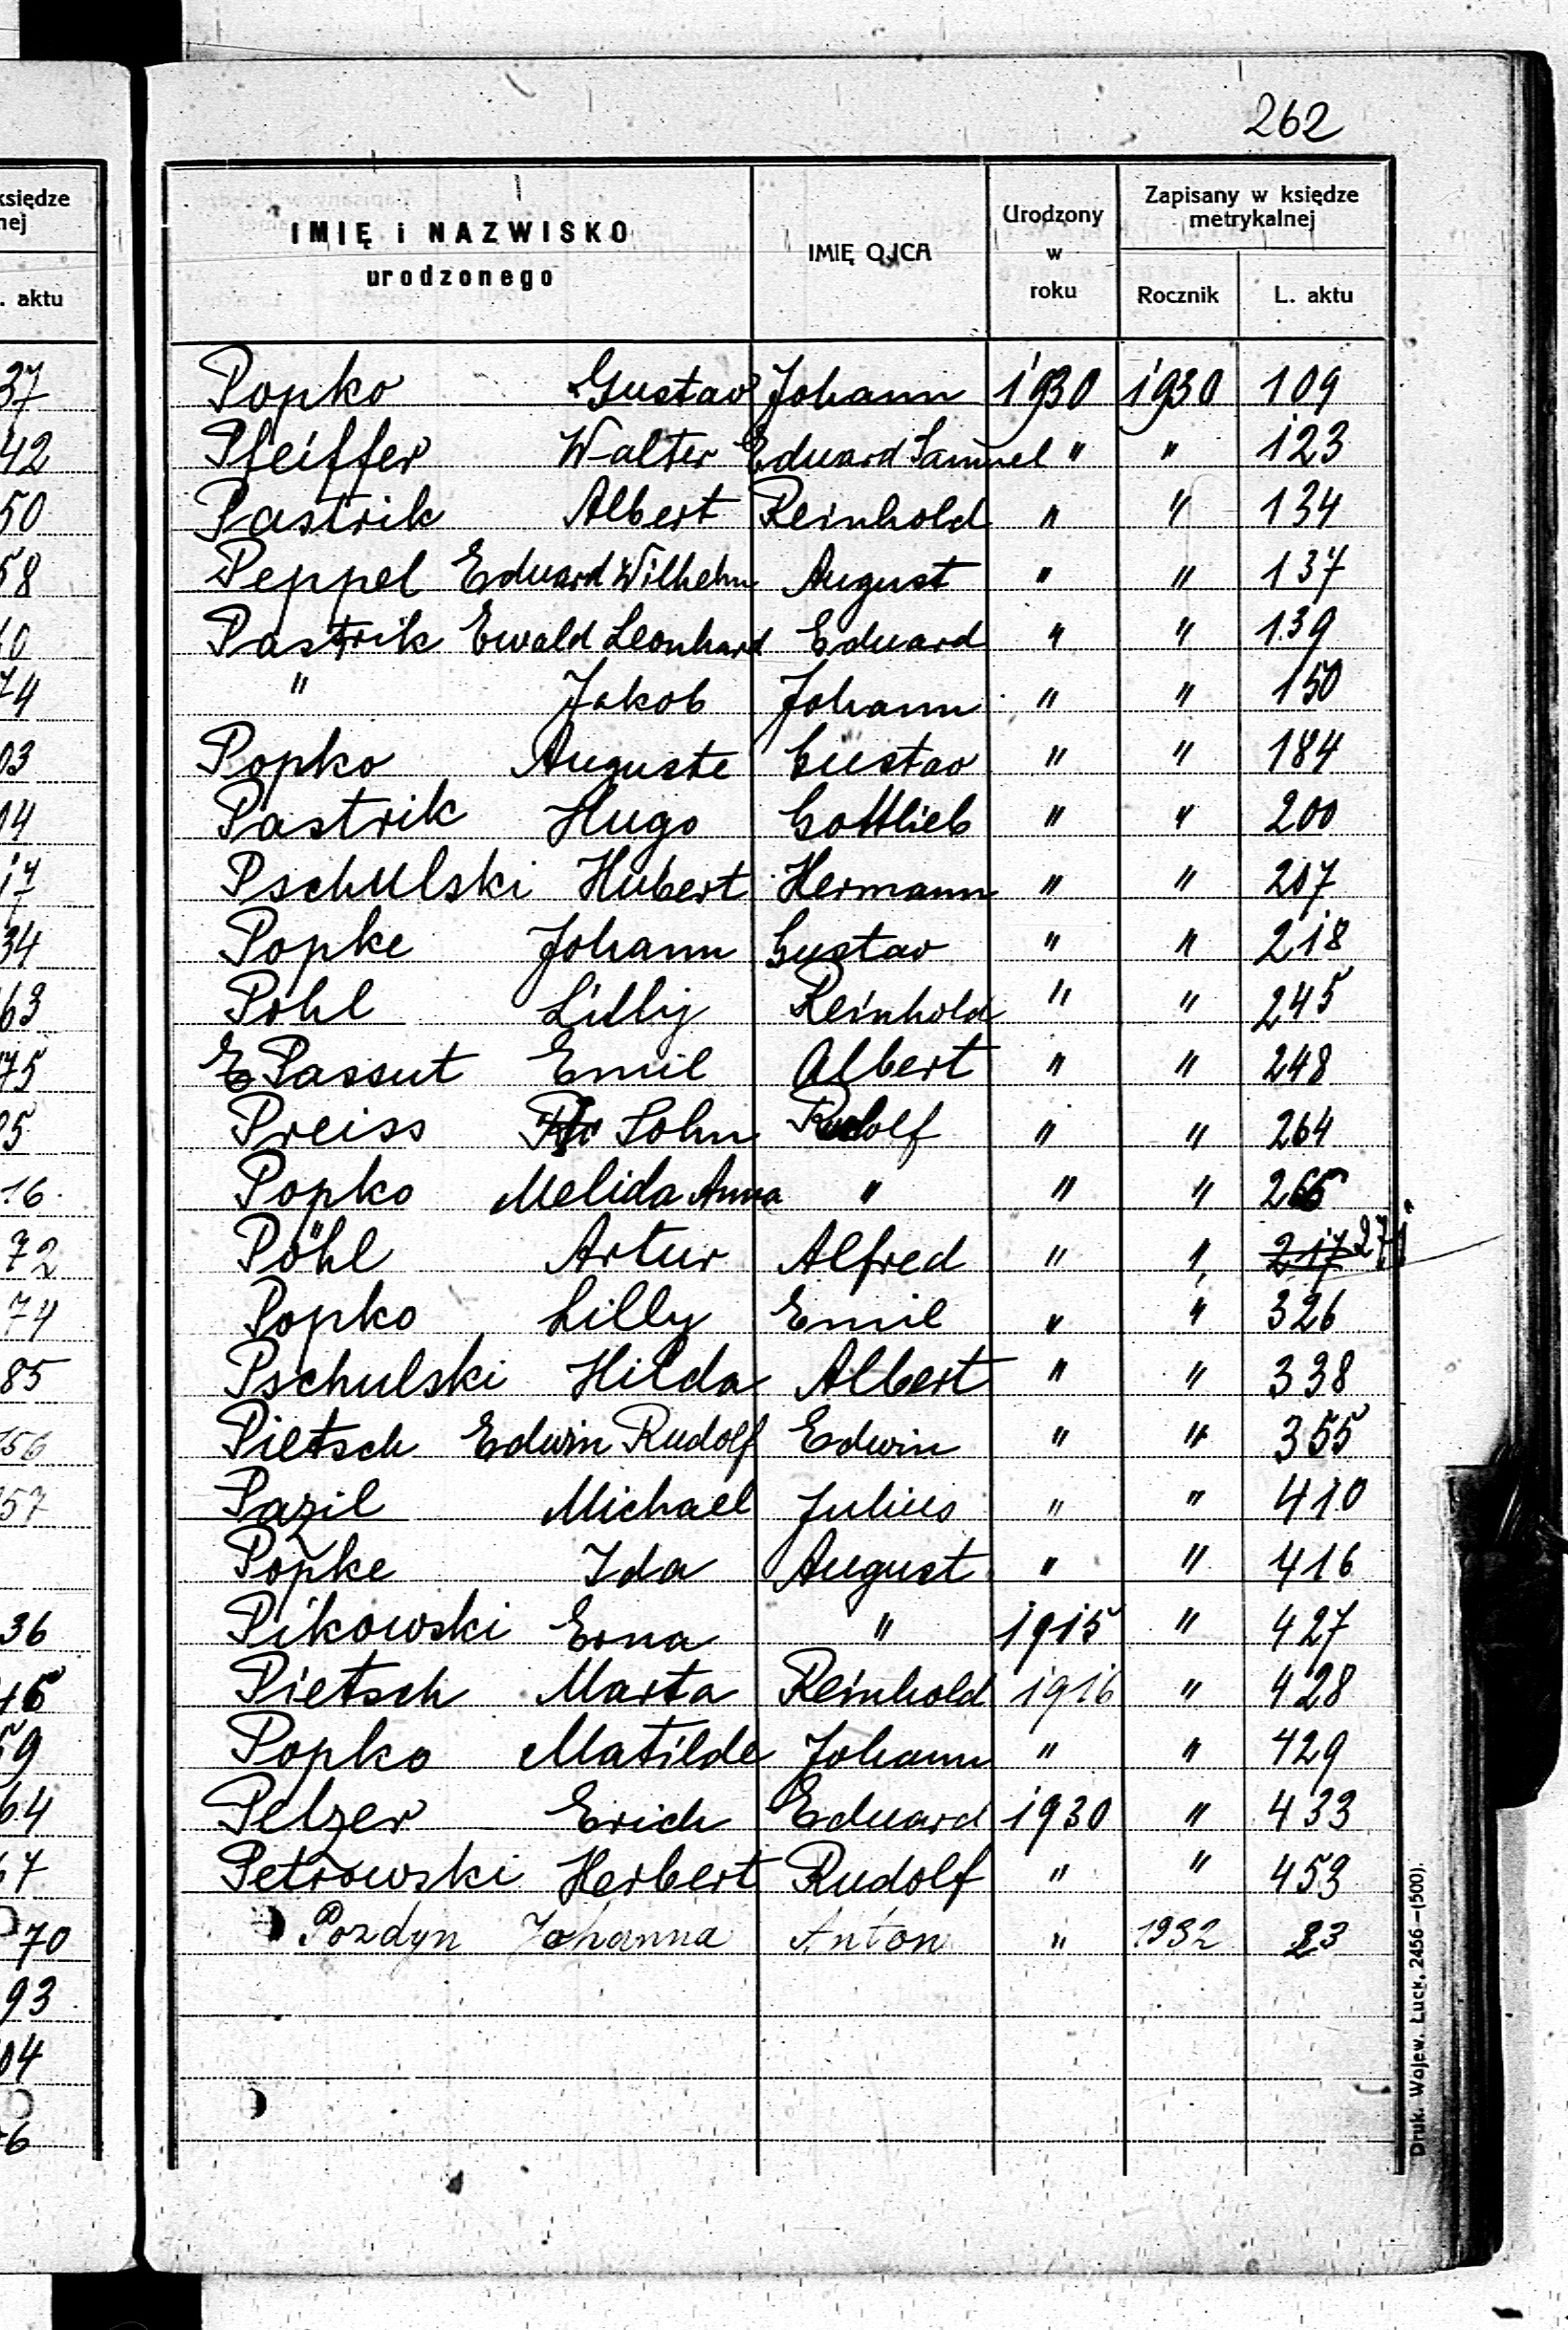 262
księdze
nej
. aktu
IMIĘ i NAZWISKO
urodzonego
IMIĘ OJCA
Urodzony
w
roku
Zapisany w księdze
metrykalnej
Rocznik
L. aktu
Popko Gustav Johann 1930 1930 109
Pfeiffer Walter Eduard Samuel " " 123
Pastrik Albert Reinhold " " 134
Peppel Eduard Wilhelm August " " 137
Pastrik Ewald Leonhard Eduard " " 139
" Jakob Johann " " 150
Popko Auguste Gustav " " 184
Pastrik Hugo Gottlieb " " 200
Pschulski Hubert Hermann " " 207
Popke Johann Gustav " " 218
Pohl Lilly Reinhold " " 245
Passut Emil Albert " " 248
Preiss Sohn Rudolf " " 264
Popko Melida Anna " " " 265
Pöhl Artur Alfred " " 217 271
Popko Lilly Emil " " 326
Pschulski Hilda Albert " " 338
Pietsch Edwin Rudolf Edwin " " 355
Pazil Michael Julius " " 410
Popke Ida August " " 416
Pikowski Erna " 1915 " 427
Pietsch Marta Reinhold 1916 " 428
Popko Matilde Johann " " 429
Pelzer Erich Eduard 1930 " 433
Petrowski Herbert Rudolf " " 453
Pozdyn Johanna Anton " 1932 23
Druk. Wojew. Łuck, 2456—(500).